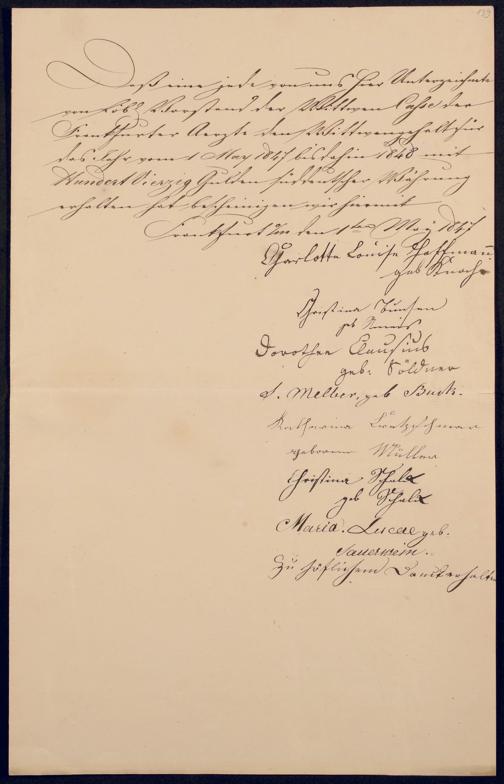 129
Daß eine jede von uns hier Unterzeichnete
von Löbl. Vorstand der Wittwen Casse der
Frankfurter Aerzte den Wittwengehalt für
das Jahr vom 1 May 1847 bis dahin 1848 mit
Hundert Vierzig Gulden süddeutscher Währung
erhalten hat bescheinigen wir hiermit
Frankfurt a/m den 1ten May 1847
Charlotte Louise Hoffmann
geb Knoche
Christina Bunsen
geb
Dorothea Clausius
geb: Söldner
S. Melber, geb Buck.
Katharina
geborene Müller
Christina Schalk
geb Schalk
Maria. Lucae geb.
Sauerwein.
zu höflichem Dank erhalten